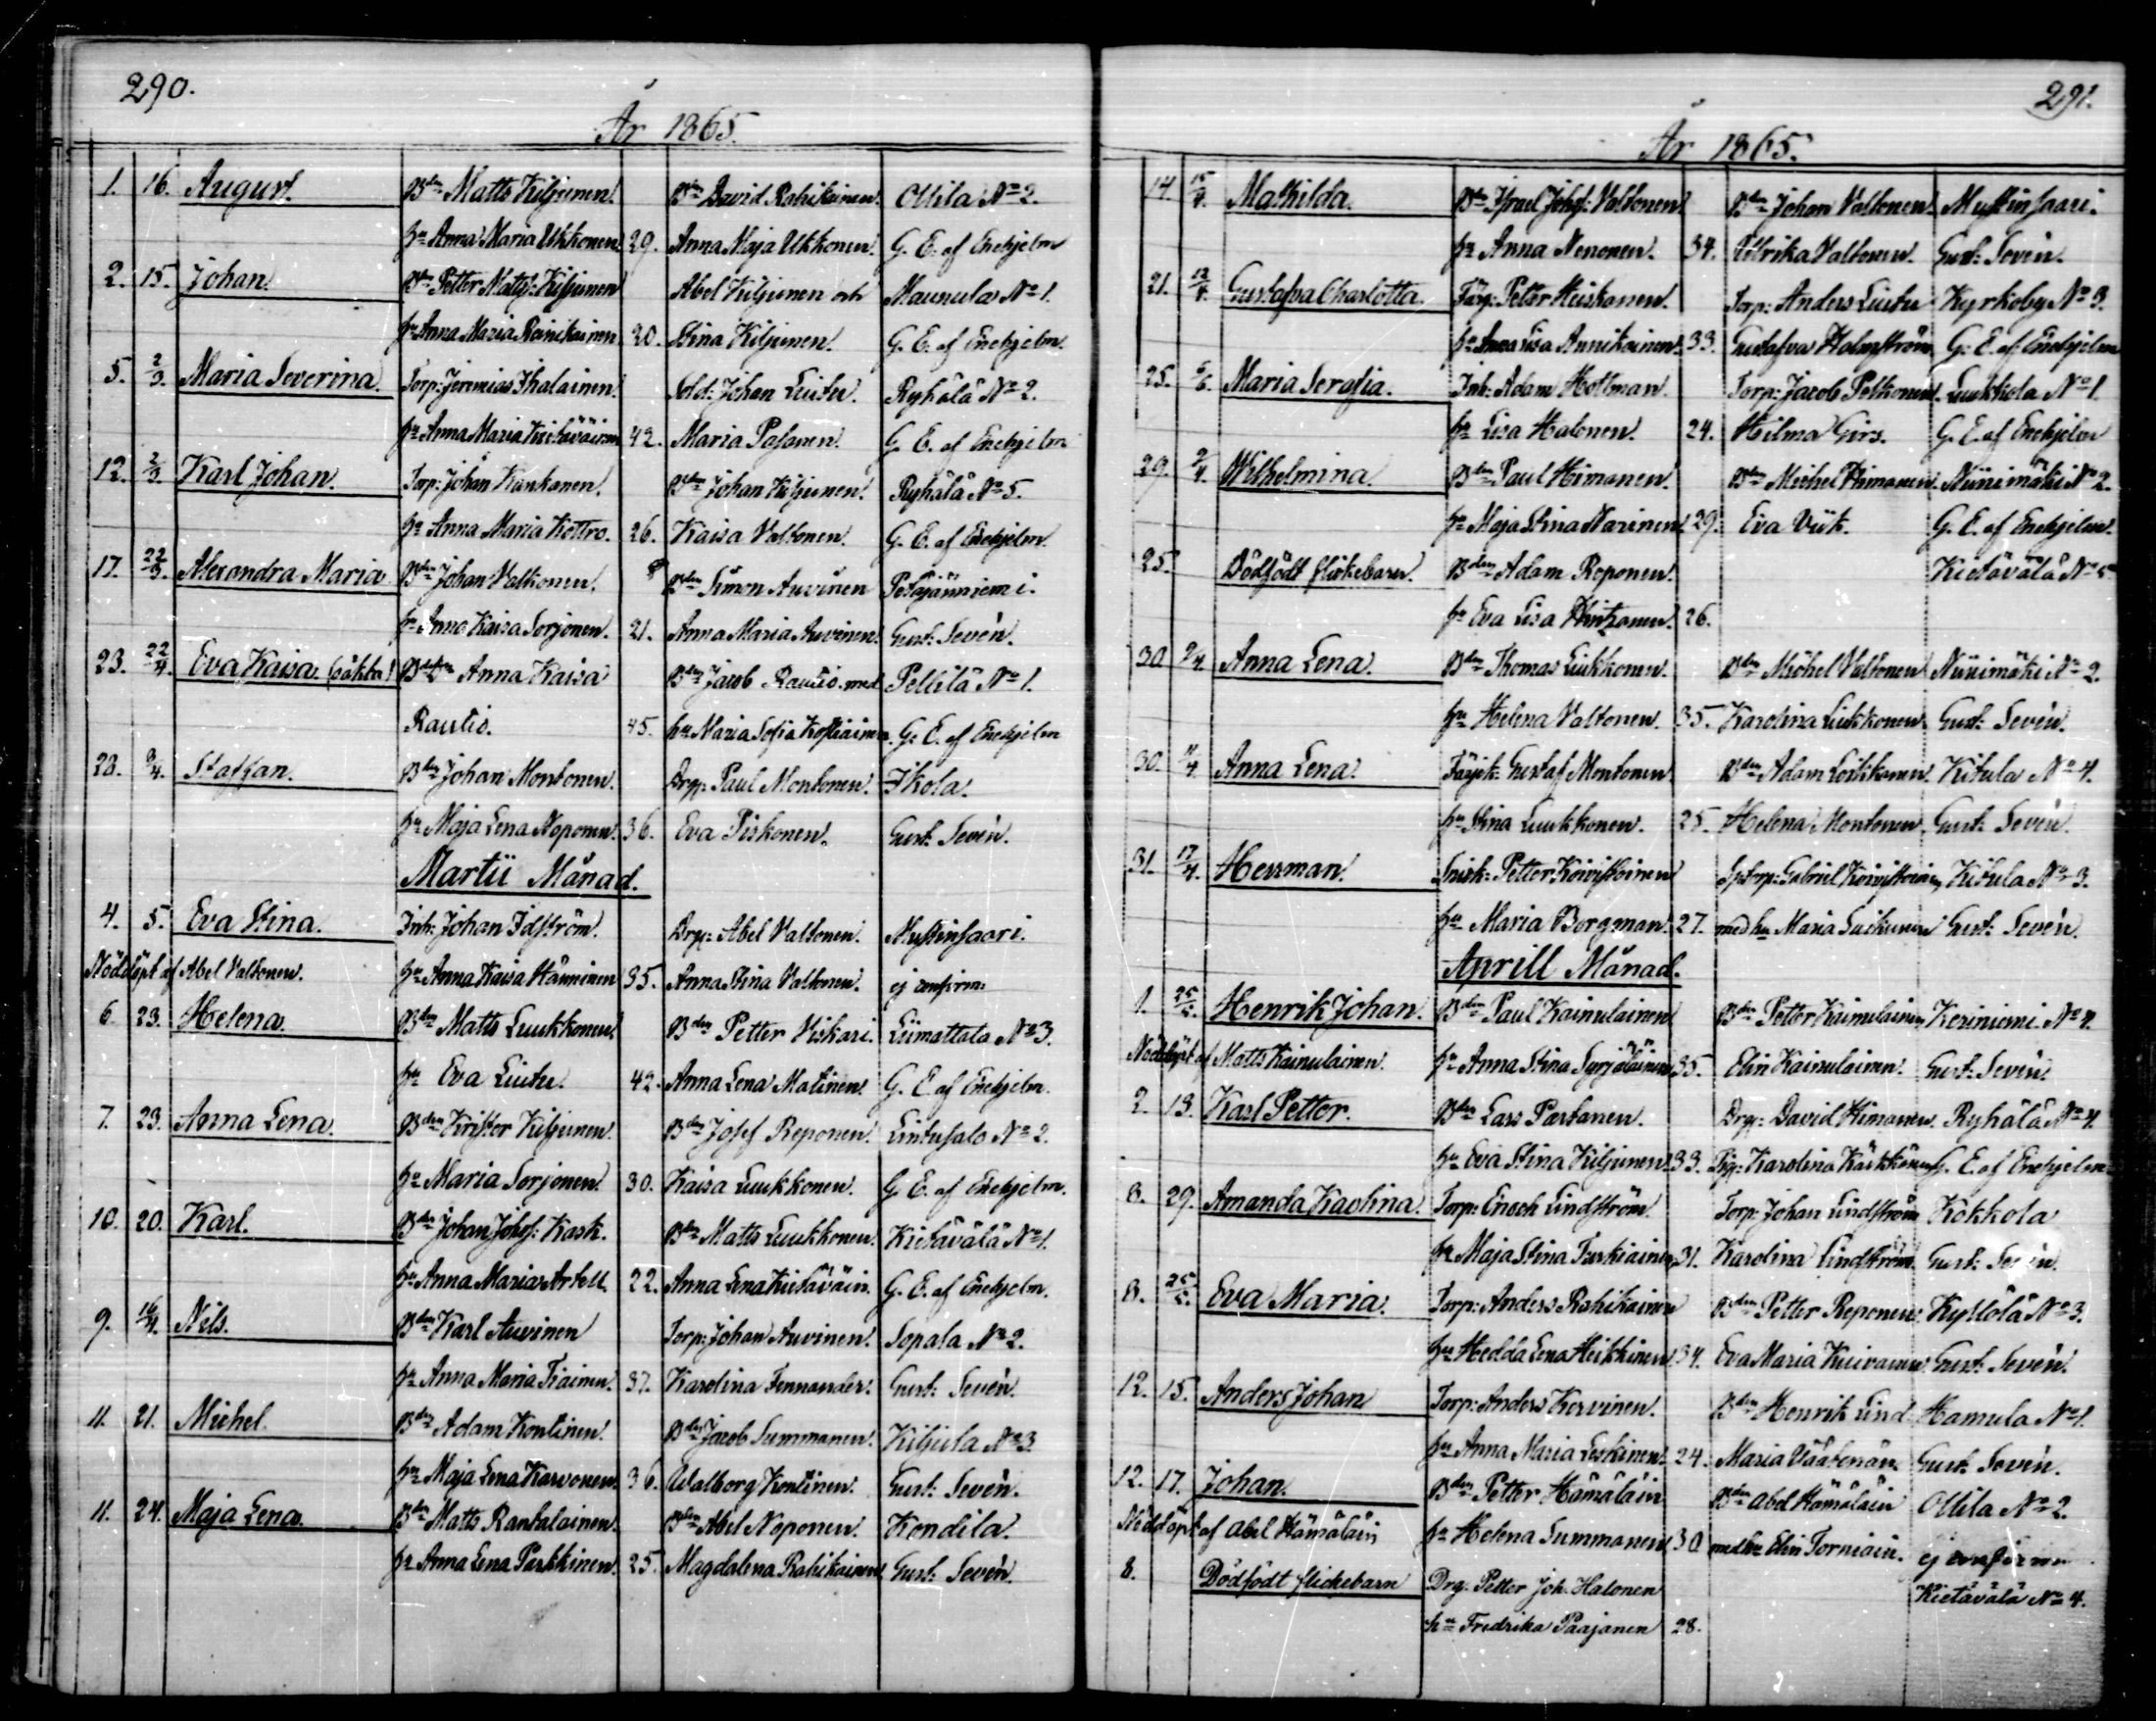 290.
År 1865.
1. 16. August. Bdn Matts Kiljunen. Bdn David Rahikainen. Ollila No 2.
hu Anna Maria Ukkonen. 29. Anna Maja Ukkonen. G. E. af Enehjelm
2. 15. Johan. Bdn Petter Matts: Kiljunen Abel Kiljunen och Maunula No 1.
hu Anna Maria Reinikainen 20. Stina Kiljunen. G. E. af Enehjelm.
5. 2/3 Maria Severina. Torp: Jeremias Ihalainen. Sold: Johan Liitu. Ryhälä No 2.
hu Anna Maria Kietäväinen 42. Maria Pasanen. G. E. af Enehjelm
12. 2/3 Karl Johan. Torp: Johan Kankanen. Bdn Johan Kiljunen. Ryhälä No 5.
hu Anna Maria Kottro. 26. Kaisa Valtonen. G. E. af Enehjelm.
17. 22/3. Alexandra Maria Bdn Johan Valkonen. Bdn Simon Auvinen Petäjäniemi.
hu Anna Kaisa Sorjonen. 21. Anna Maria Auvinen. Gust: Sevén.
23. 22/4. Eva Kaisa. (oäkta) Anna Kaisa Bdn Jacob Rautio med Pellilä No 1.
Rautio. 45. hu Maria Sofia Kostiainen. G. E. af Enehjelm
28. 3/4. Staffan. Bdn Johan Montonen. Drg: Paul Montonen. Ikola.
hu Maja Lena Noponen. 36. Eva Piskonen. Gust: Sevén.
Martii Månad.
4. 5. Eva Stina. Inh: Johan Idström. Drg: Abel Valtonen. Mustinsaari.
Nöddöpt af Abel Valtonen. hu Anna Kaisa Hänninen 35. Anna Stina Valtonen. ej confirm:
6. 23. Helena. Bdn Matts Luukkonen. Bdn Petter Viskari. Liimattala No 3.
hu Eva Liitu. 42. Anna Lena Matinen. G. E. af Enehjelm.
7. 23. Anna Lena. Bdn Krister Kiljunen. Bdn Josef Reponen. Lintusalo No 2.
hu Maria Sorjonen. 30. Kaisa Luukkonen. G. E. af Enehjelm.
10. 20. Karl. Bdn Johan Johs: Kask. Bdn Matts Luukkonen. Kietävälä No 1.
hu Anna Maria Artell. 22. Anna Lena Kietäväin. G. E. af Enehjelm.
9. 16/4. Nils. Bdn Karl Auvinen Torp: Johan Auvinen. Sopala No 2.
hu Anna Maria Tiainen. 37. Karolina Fennander. Gust: Sevén.
11. 21. Michel. Bdn Adam Kontinen. Bdn Jacob Summanen. Kiljula No 3
hu Maja Lena Karvonen. 36. Walborg Kontinen. Gust: Sevén.
11. 24. Maja Lena. Bdn Matts Rantalainen. Bdn Abel Noponen. Kondila.
hu Anna Lena Parkkinen. 25. Magdalena Rahikainen Gust: Sevén.
291.
År 1865.
14. 15/4. Mathilda. Bdn Israel Johs: Valtonen. Bdn Johan Valtonen. Mustinsaari.
hu Anna Nenonen. 34. Ulrika Valtonen. Gust: Sevén.
21. 12/4. Gustafva Charlotta. Färg: Petter Heiskanen. Torp: Anders Liitu Kyrkoby No 3.
hu Anna Lisa Annikainen. 33. Gustafva Holmström G. E. af Enehjelm
25. 5/6. Maria Serafia. Inh: Adam Holtman. Torp: Jacob Pelkonen. Luukkola No 1.
hu Lisa Halonen. 24. Hilma Girs. G. E. af Enehjelm
29. 9/4. Wilhelmina. Bdn Paul Himanen. Bdn Michel Himanen. Niinimäki No 2.
hu Maja Stina Narinen. 29. Eva Viik. G. E. af Enehjelm.
25. Dödfödt flickebarn. Bdn Adam Reponen. Kietävälä No 5
hu Eva Lisa Hintzanen. 26.
30 9/4 Anna Lena. Bdn Thomas Liukkonen. Bdn Michel Valtonen Niinimäki No 2.
hu Helena Valtonen. 35. Karolina Liukkonen Gust: Sevén.
30. Anna Lena. Gustaf Montonen. Bdn Adam Loikkanen. Kitula No 4.
hu Stina Luukkonen. 25. Helena Montonen. Gust: Sevén.
31. 17/4. Herrman. Snick: Petter Koivistoinen Gabriel Koivistoin Kitula No 3.
hu Maria Borgman. 27. med hu Maria Suikanen Gust: Sevén.
Aprill Månad.
1. 25/5. Henrik Johan. Bdn Paul Kainulainen Bdn Petter Kainulainen Keriniemi No 4.
Nöddöpt af Matts Kainulainen. hu Anna Stina Syrjäläinen 35. Elin Kainulainen. Gust: Sevén.
2. 13. Karl Petter. Bdn Lars Partanen. Drg: David Himanen. Ryhälä No 4.
hu Eva Stina Kiljunen. 33. Pig: Karolina Kärkkäinen G. E. af Enehjelm
8. 29. Amanda Kaolina. Torp: Enoch Lindström. Torp: Johan Lindström Kokkola
hu Maja Stina Turkiainen 31. Karolina Lindström. Gust: Sevén.
8. 25/5. Eva Maria. Torp: Anders Rahikainen Bdn Petter Reponen. Kyllölä No 3.
hu Hedda Lena Heikkinen 34. Eva Maria Kuivanen Gust: Sevén.
12. 15. Anders Johan Torp: Anders Kervinen. Bdn Henrik Lind Hamula No 1.
hu Anna Maria Leskinen. 24. Maria Väätänän. Gust: Sevén.
12. 17. Johan. Bdn Petter Hämäläin Bdn Abel Hämäläin Ollila No 2.
Nöddöpt af Abel Hämäläin hu Helena Summanen 30 med hu Elin Torniain. ej confirm
8. Dödfödt flickebarn Drg. Petter Joh. Halonen Kietävälä No 4.
hu Fredrika Paajanen 28.